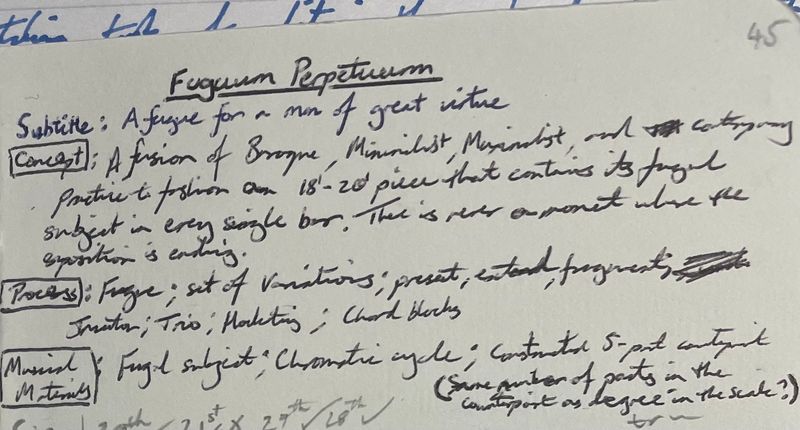 45
Fuguum Perpetuum
Subtitle: A fugue for a man of great virtue
Concept: A fusion of Baroque, Minimalist, Maximalist, and contemporary
practice to fashion an 18'-20' piece that contains its fugal
subject in every single bar. There is never a moment where the
exposition is ending.
Process: Fugue; set of variations; present, extend, fragments
Invention; Trio; Hocketing; Chord blocks
Musical Materials: Fugal subject; Chromatic cycle; Constructed 5-part counterpoint
(Same number of parts in the
counterpoint as degree in the scale?)
21st x 27th ✓ 28th ✓